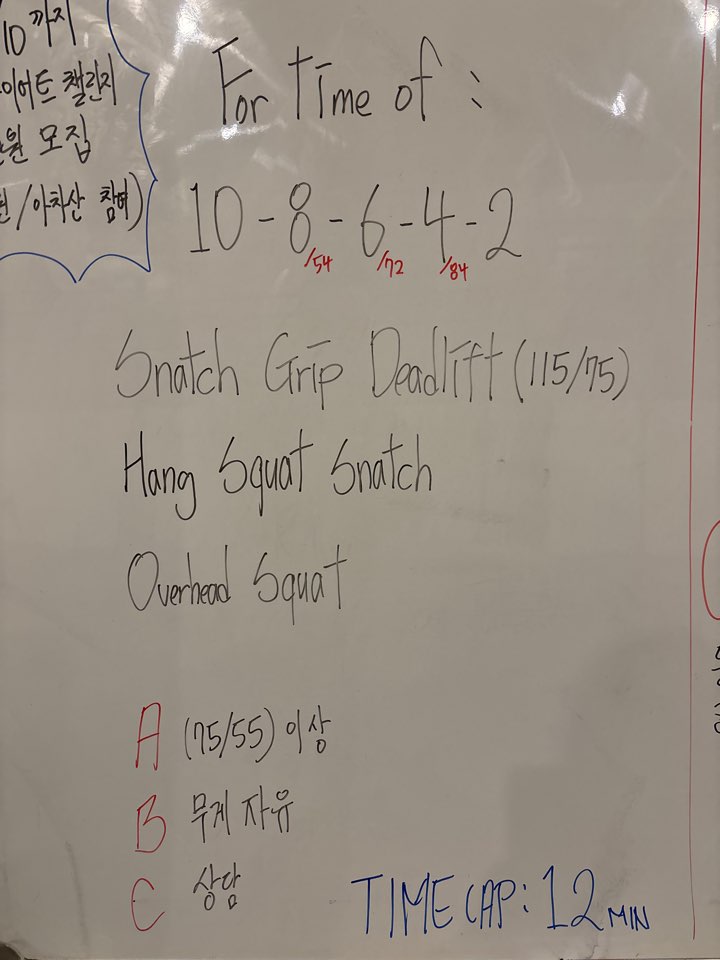 10까지
이어트 챌린지
모집
/아차산 참여)
For Time of :
10-8-6-4-2
/54 /72 /84
Snatch Grip Deadlift (115/75)
Hang Squat Snatch
Overhead Squat
A (75/55) 이상
B 무게 자유
C 상담
TIME CAP: 12 MIN